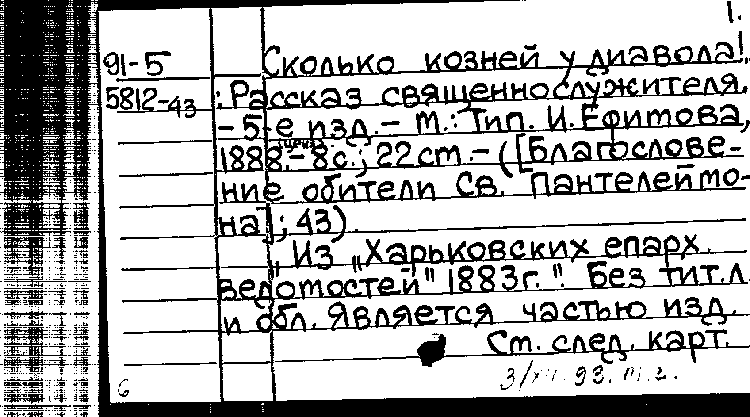 1.
91-5 Сколько козней у диавола!
5812-43 : Рассказ священнослужителя.
- 5-е изд. - М.: Тип. И. Ефимова,
1888. - 8 с.; 22 см. - ([Благослове-
ние обители Св. Пантелеймо-
на]; 43).
„Из „Харьковских епарх.
ведомостей" 1883 г.". Без тит. л.
и обл. Является частью изд.
См. след. карт.
6